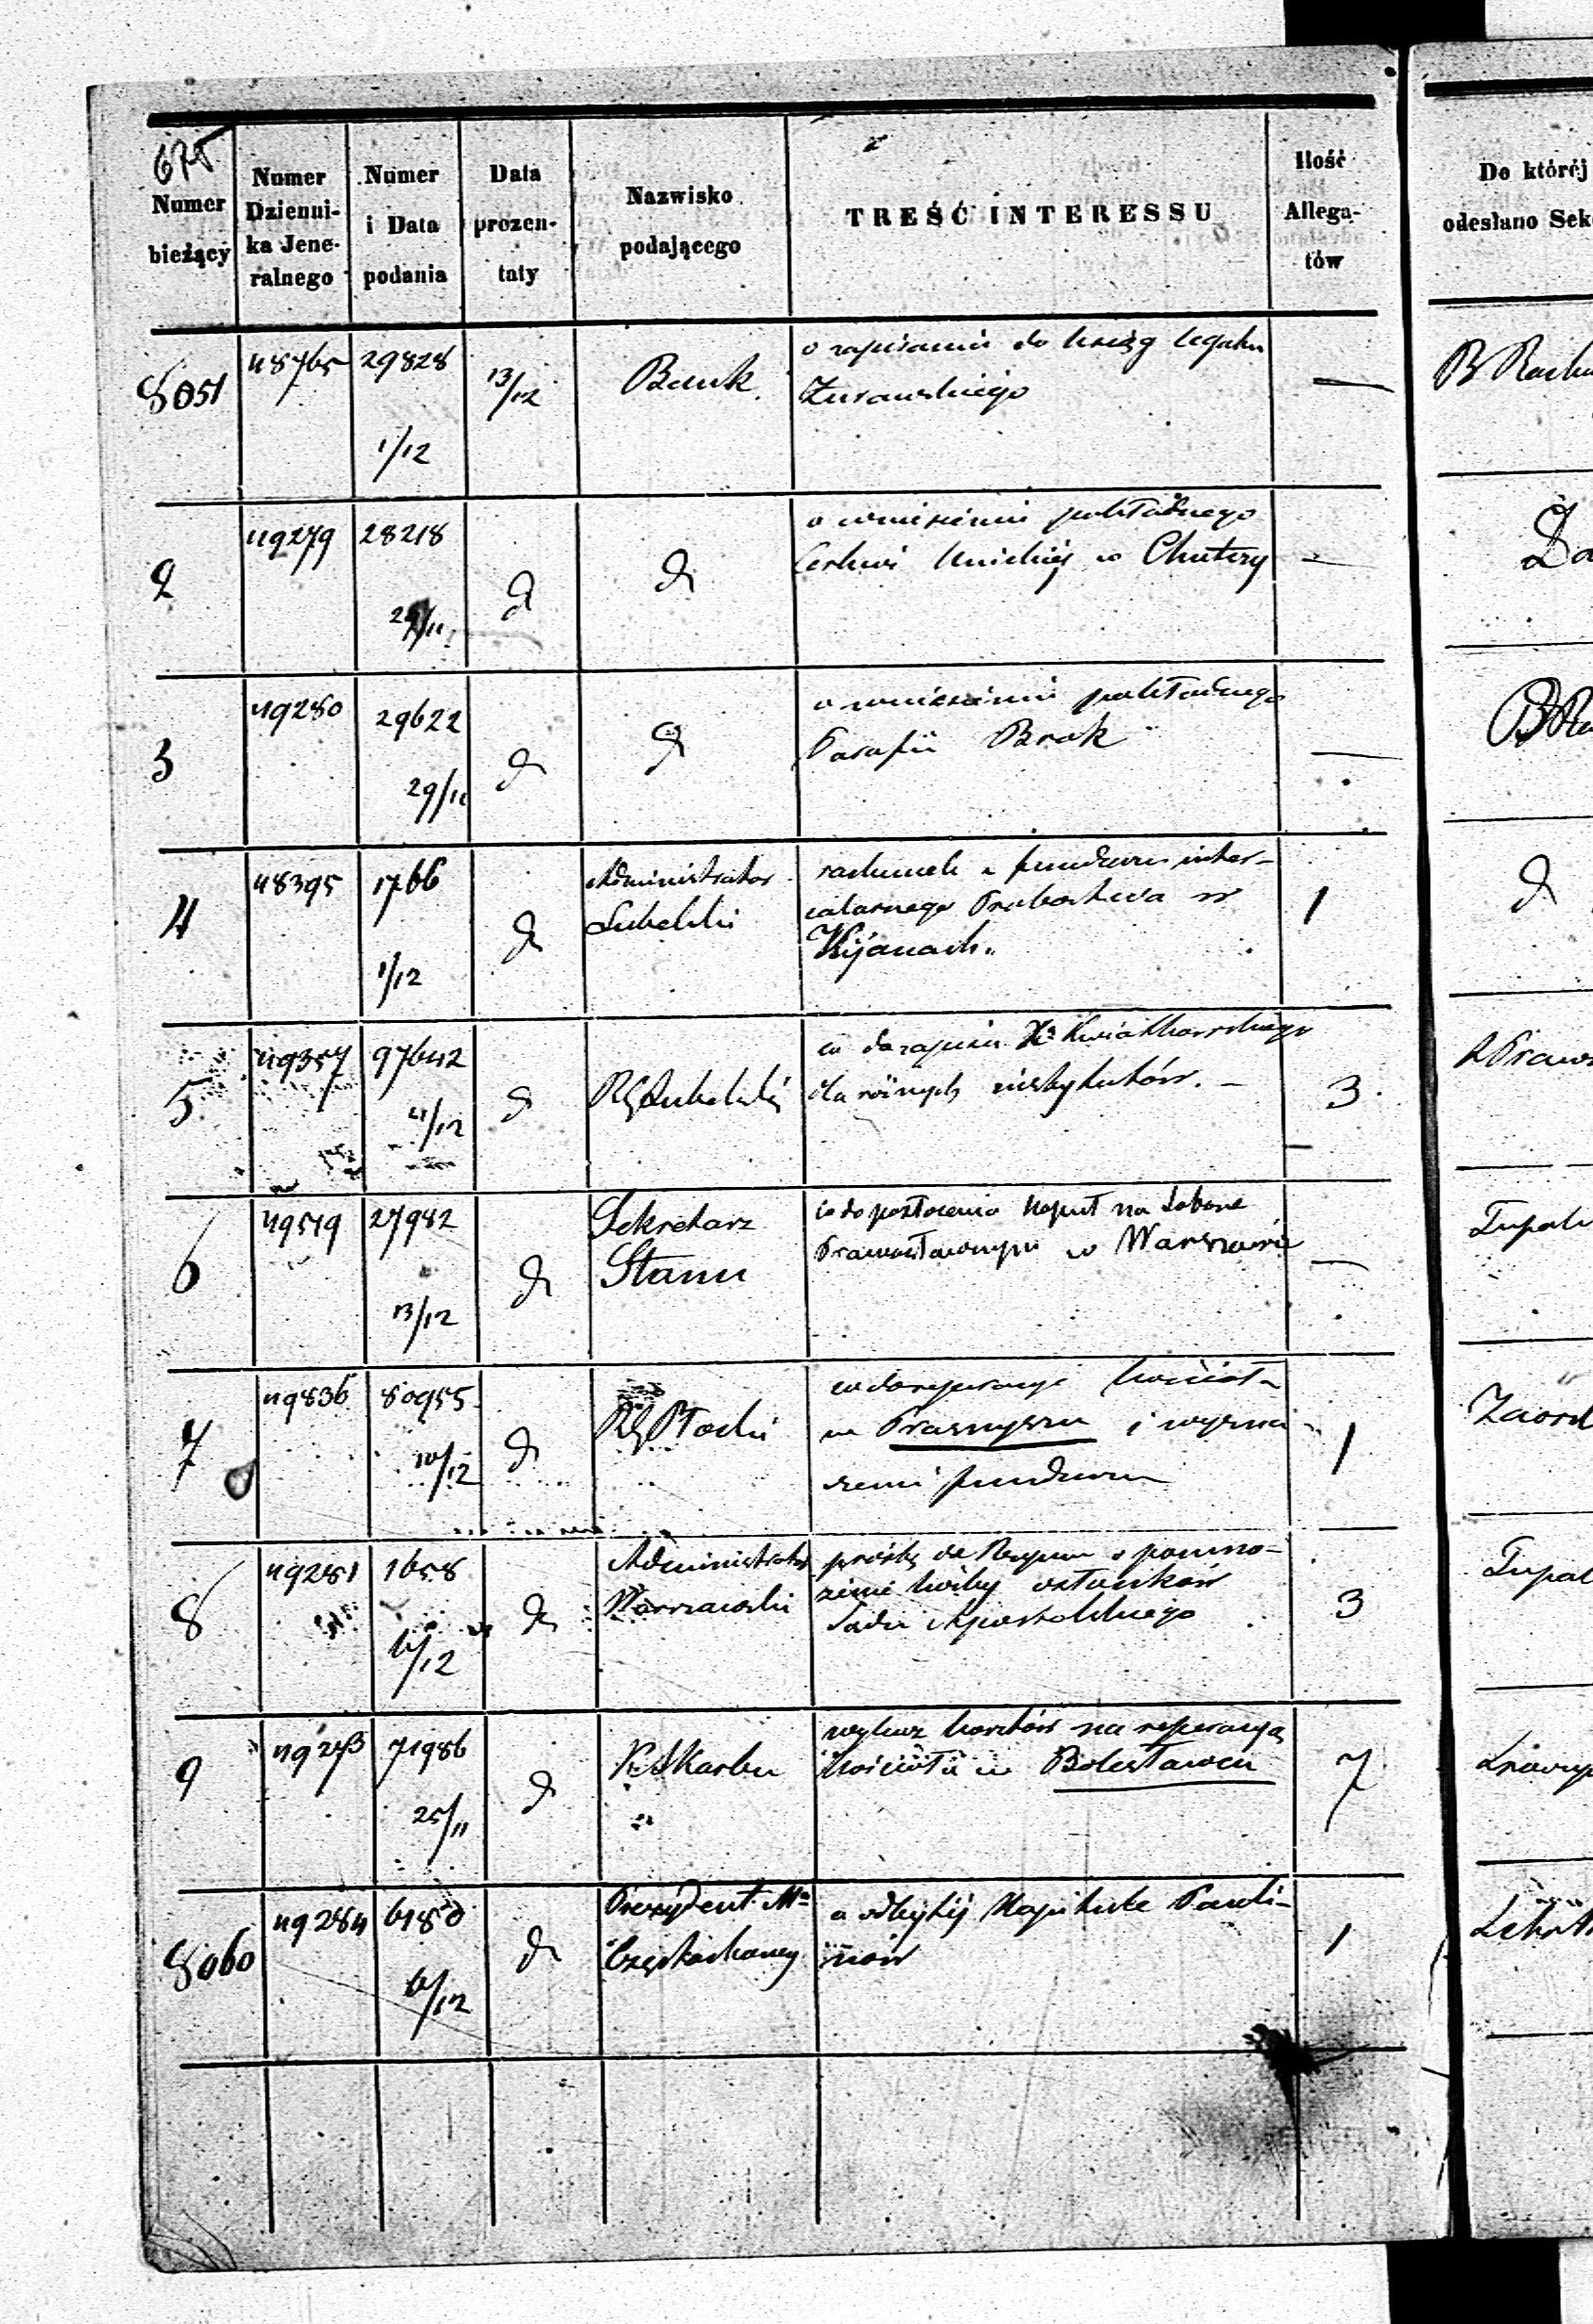 675
Numer bieżący
Numer Dzienni-
ka Jene-
ralnego
Numer
i Data
podania
Data
prozen-
taty
Nazwisko
podającego
TREŚĆ INTERESSU
Ilość
Allega-
tów
Do któréj
odesłano Sek
8051 48765 29828 1/12 13/12 Bank
o zapisanie do ksiąg legatu
Żurawskiego
—
2 49279 28218 d d
o wniesieniu pokładnego
Cerkwi Unickiej w Chutczy
—
3 49280 29622 29/11 d d
o wniesieniu pokładnego
Parafii Brok
—
d
4 48395 1766 1/12 d
Administrator
Lubelski
rachunek z funduszu inter-
calarnego Probostwa w
Kijanach
1
5 49357 97642 4/12 d
RG Lubelski
co do zapisu X Kwiatkowskiego
dla różnych instytutów. —
3
6 49519 27982 13/12 d
Sekretarz
Stanu
co do pozłocenia Kopuł na Soborze
Prawosławnym w Warszawie
—
7 49836 80955 10/12 d
RG Płocki
co do reperacyi kościoła
w Prasnyszu i wyzna-
czenie funduszu
1
8 49281 1658 6/12 d
Administrator
Warszawski
prośbę do Rzymu o pomno-
żenie liczby członków
Sądu Apostolskiego
3
9 49273 71986 25/11 d
K. Skarbu
wykaz kosztów na reperacyą
kościoła w Bolesławcu
7
8060 49284 6180 6/12 d
Prezydent Mta
Częstochowy
o odbytej Kapitule Pauli-
nów
1